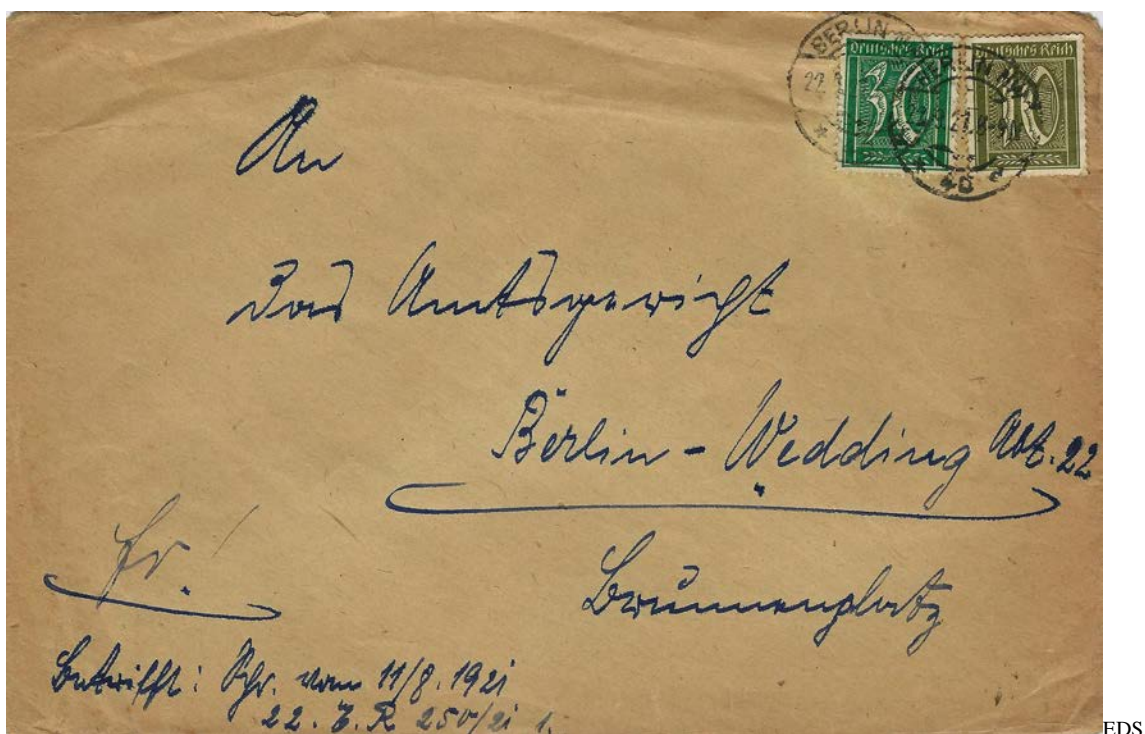 BERLIN
22.
Deutsches Reich
30
Deutsches Reich
10
BERLIN NW
40
An
das Amtsgericht
Berlin-Wedding Abt. 22
Brunnenplatz
fr.
Betrifft: Schr. vom 11/8. 1921
22. 250/21
EDS